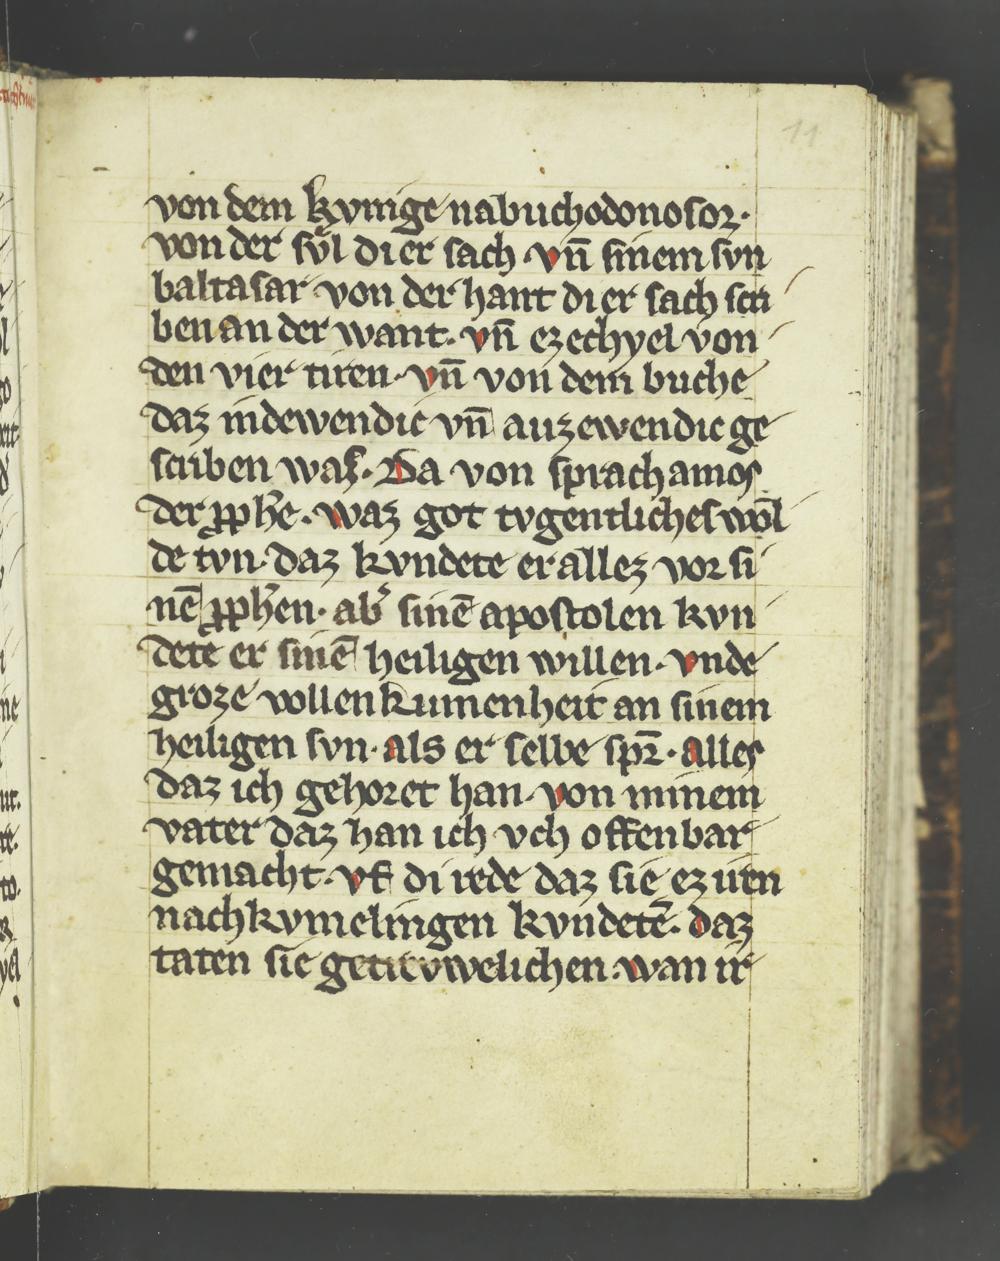 11
von dem kvnige nabuchodonosor·
von der svͤl di er sach · vn̄ sinem svn
baltasar von der hant di er sach scri
ben an der want· vn̄ ezechyel von
den vier tiren· vn̄ von dem buche
daz indewendic vn̄ auzewendic ge
scriben was· Da von sprach amos
der ꝓphe̅· waz got tvgentliches wol
de tvn· daz kvndete er allez vor si
nē ꝓphen̅· ab͛ sinē apostolen kvn
dete er sinē heiligen willen· vnde
groze vollenkumenheit an sinem
heiligen svn· als er selbe spr̄· alles
daz ich gehoret han· von minem
vater daz han ich vch offenbar
gemacht· vf di rede daz sie ez iren
nachkvmelingen kvndetē· daz
taten sie getrevwelichen· wan ir